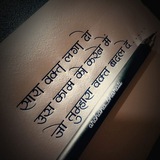 सारा वक्त लगा दो
उस काम को करने में
जो तुम्हारा वक्त बदल दे